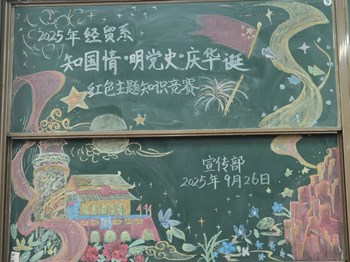 2025年经贸系
知国情·明党史·庆华诞
红色主题知识竞赛
宣传部
2025年9月26日